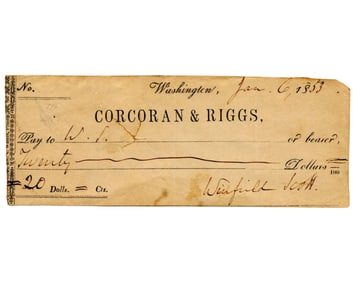 No. Washington, Jan. 6, 1853
CORCORAN & RIGGS,
Pay to W. S. or bearer,
Twenty Dollars 100
$20 Dolls. = Cts. Winfield Scott.